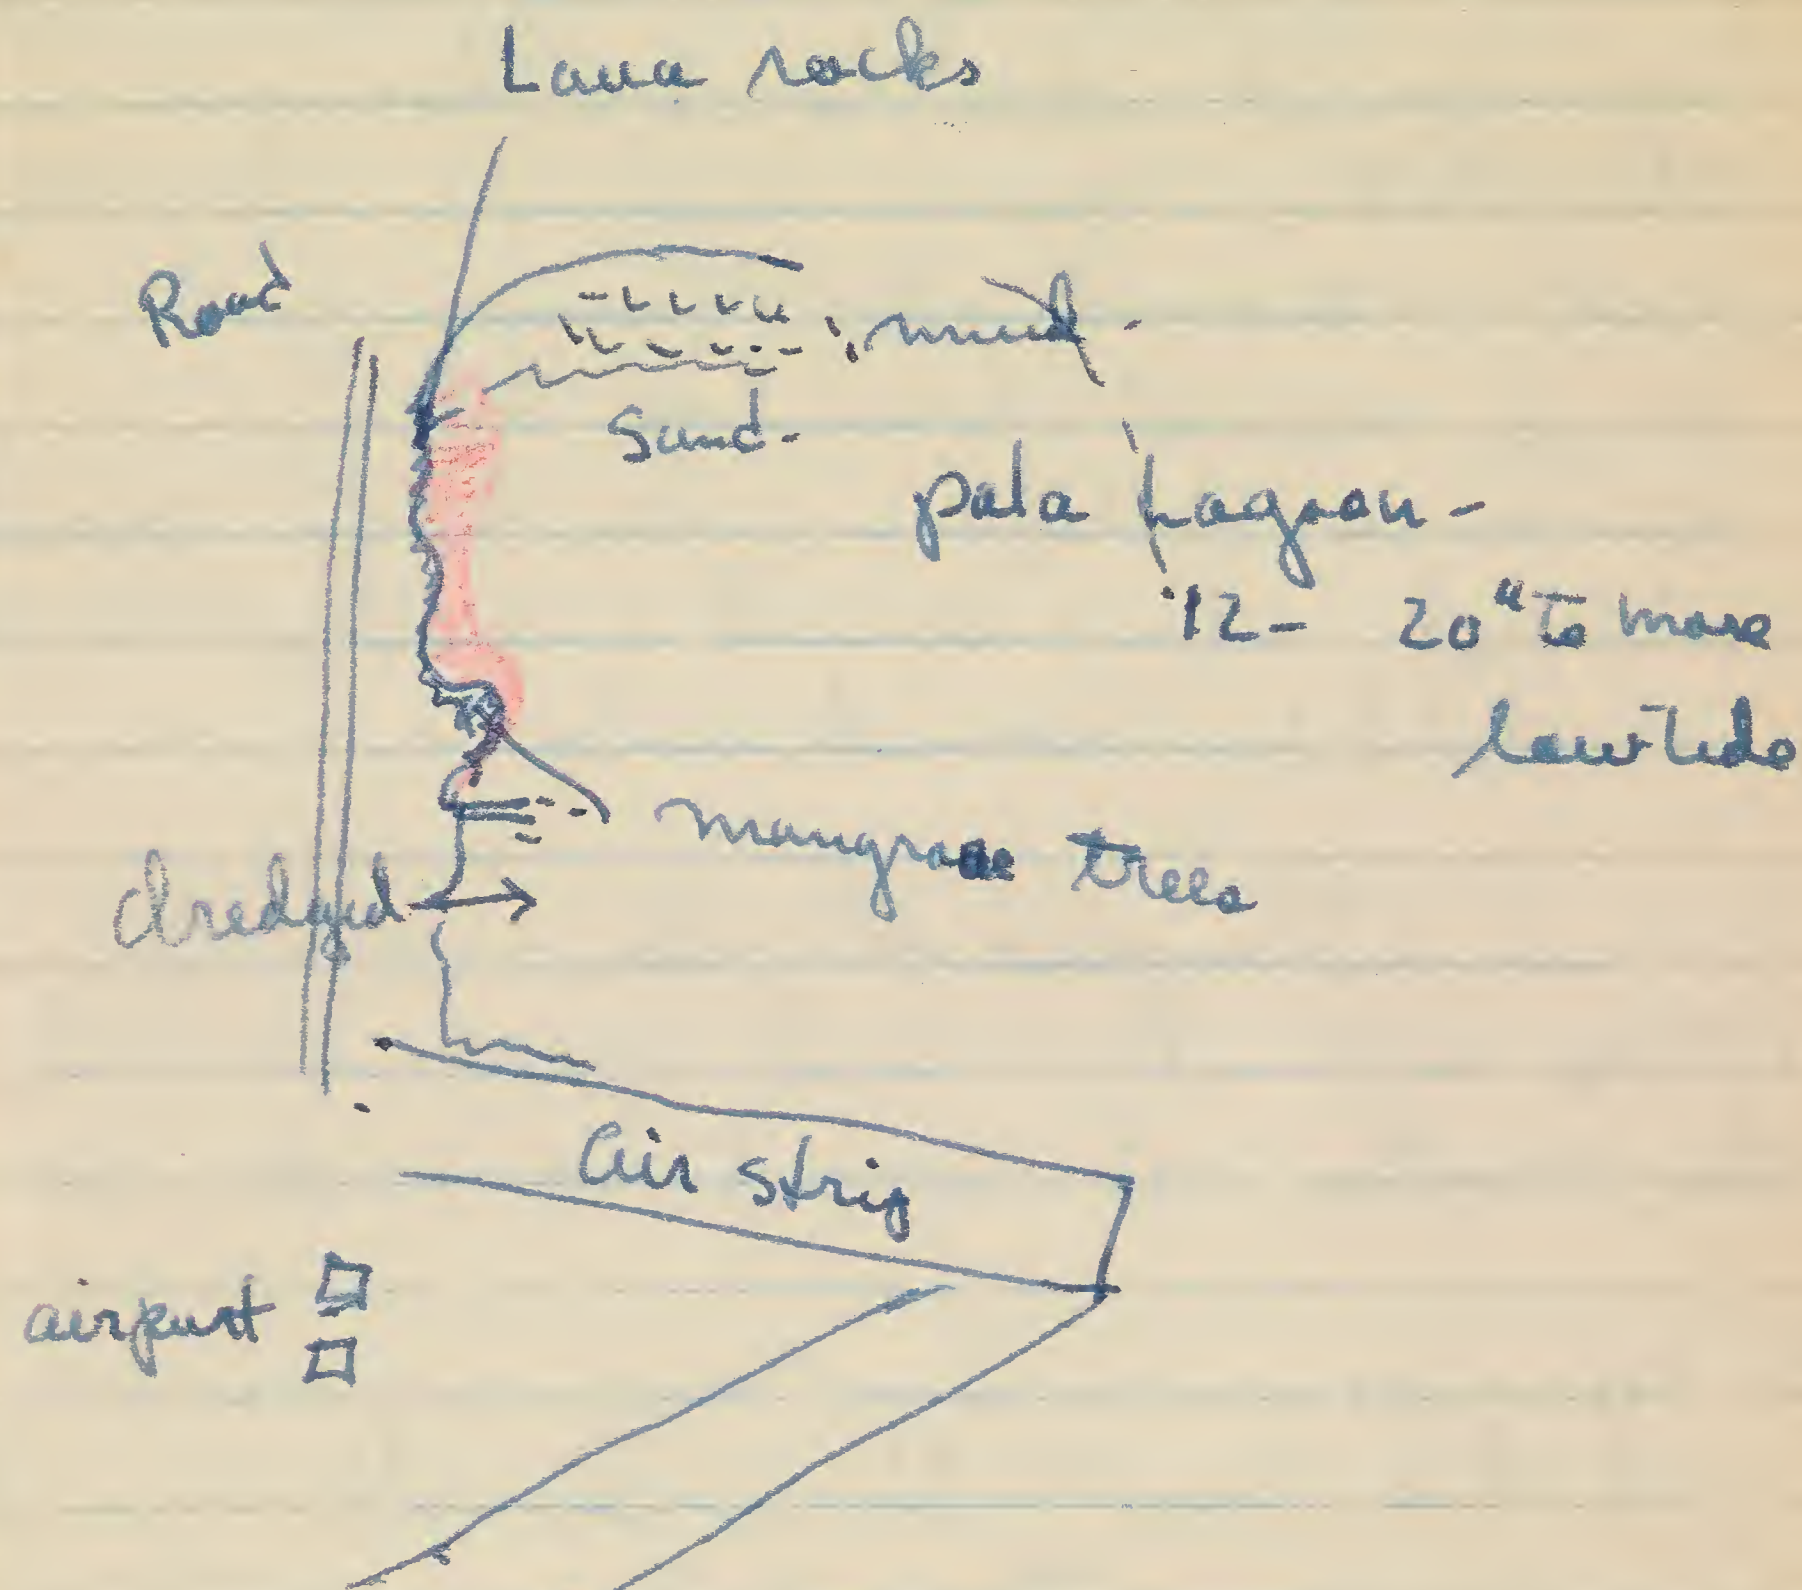 Lava rocks
Road
mud-
Sand-
pala Lagoon-
12- 20" to more
low tide
mangrove trees
dredged
Air strip
airport